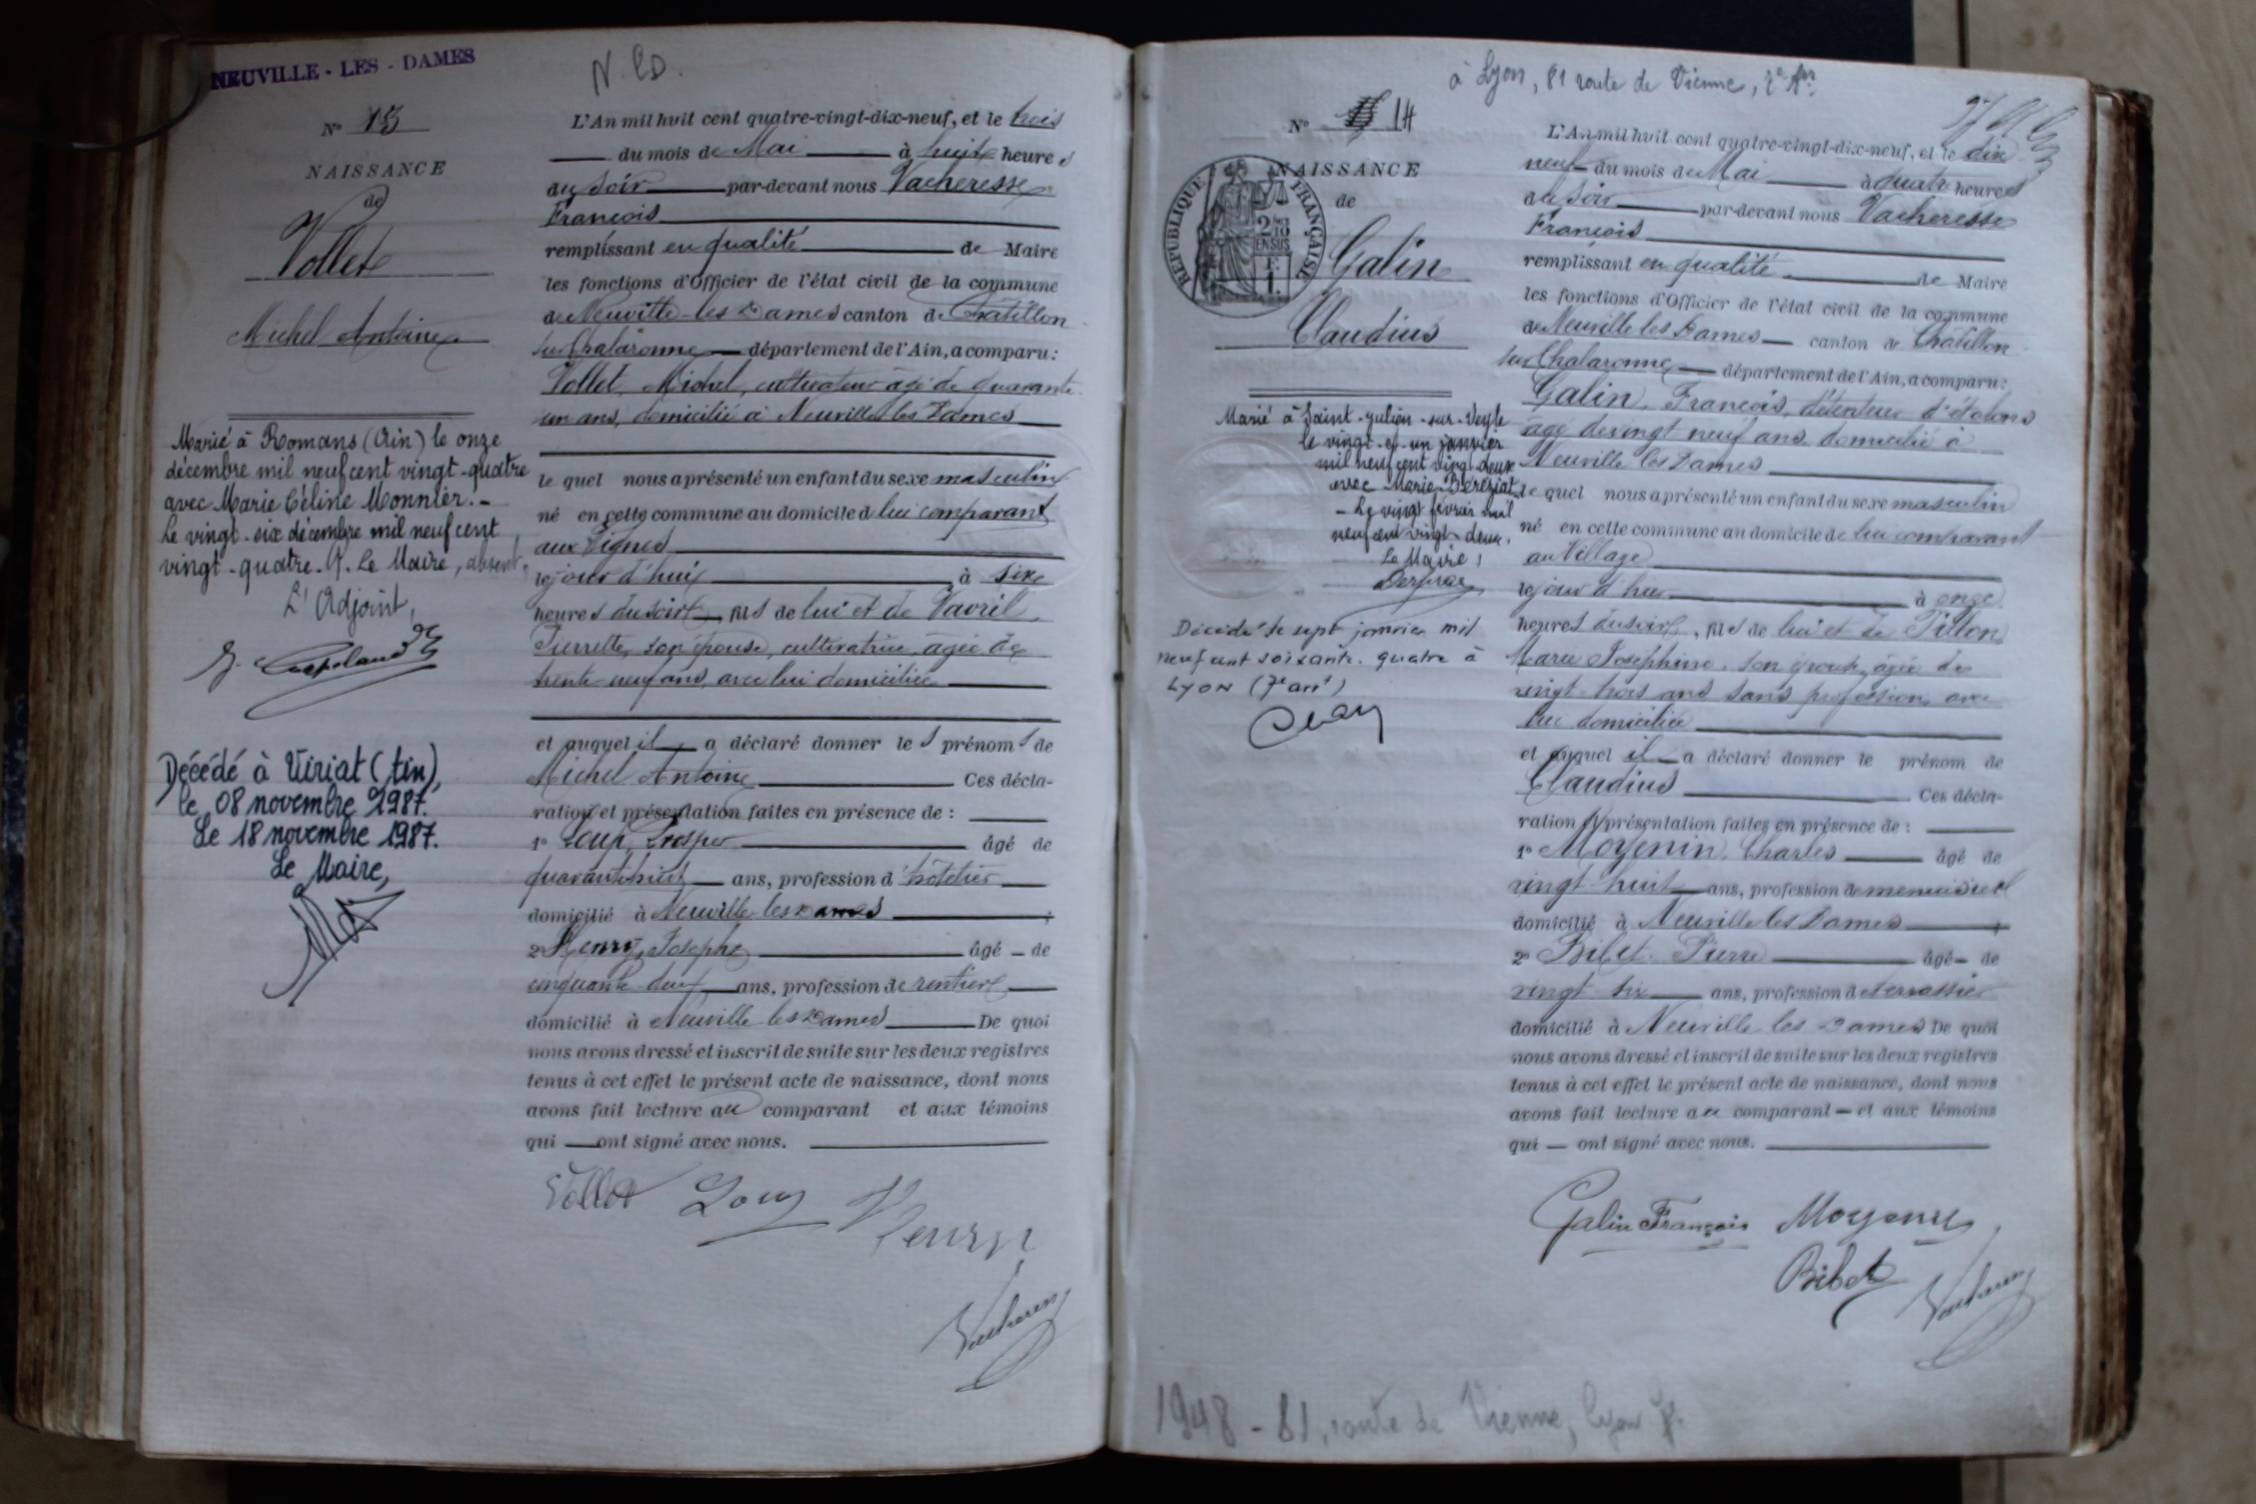 NEUVILLE - LES - DAMES
N. LD.
N° 13
NAISSANCE
de
Vollet
Michel Antoine
Marié à Romans (Ain) le onze
décembre mil neuf cent vingt-quatre
avec Marie Céline Monnier. -
Le vingt-six décembre mil neuf cent
vingt-quatre. P. Le Maire, absent,
L'Adjoint,
Décédé à Viriat (Ain),
le 08 novembre 1987.
Le 18 novembre 1987.
Le Maire,
L'An mil huit cent quatre-vingt-dix-neuf, et le trois
du mois de Mai à huit heures
du soir par-devant nous Vacheresse
François
remplissant en qualité de Maire
les fonctions d'Officier de l'état civil de la commune
de Neuville-les-Dames canton de Châtillon
sur Chalaronne département de l'Ain, a comparu :
Vollet, Michel, cultivateur âgé de quarante
un ans, domicilié à Neuville les Dames
le quel nous a présenté un enfant du sexe masculin
né en cette commune au domicile de lui comparant
aux Vignes
le jour d'hui à six
heures du soir, fils de lui et de Vavril,
Pierrette, son épouse, cultivatrice, âgée de
trente neuf ans, avec lui domiciliée
et auquel il a déclaré donner les prénoms de
Michel Antoine Ces décla-
ration et présentation faites en présence de :
1° Loup, Prosper âgé de
quarante huit ans, profession d'hôtelier
domicilié à Neuville les Dames ;
2° Henry, Josephe âgé de
cinquante deux ans, profession de rentier
domicilié à Neuville les Dames De quoi
nous avons dressé et inscrit de suite sur les deux registres
tenus à cet effet le présent acte de naissance, dont nous
avons fait lecture au comparant et aux témoins
qui ont signé avec nous.
Vollet Loup Henry
Vacheresse
à Lyon, 81 route de Vienne, 7e Arr.
N° 14
NAISSANCE
de
RÉPUBLIQUE FRANÇAISE
Galin
Claudius
Marié à Saint-Julien-sur-Veyle
le vingt-et-un janvier
mil neuf cent vingt deux
avec Marie Béréziat
- Le vingt février mil
neuf cent vingt-deux.
Le Maire,
Décédé le sept janvier mil
neuf cent soixante-quatre à
LYON (7e arrt)
L'An mil huit cent quatre-vingt-dix-neuf, et le dix
neuf du mois de Mai à quatre heures
du soir par-devant nous Vacheresse
François
remplissant en qualité de Maire
les fonctions d'Officier de l'état civil de la commune
de Neuville les Dames canton de Châtillon
sur Chalaronne département de l'Ain, a comparu :
Galin, François, détenteur d'étalons
âgé de vingt neuf ans, domicilié à
Neuville les Dames
le quel nous a présenté un enfant du sexe masculin
né en cette commune au domicile de lui comparant
au Village
le jour d'hui à onze
heures du soir, fils de lui et de Pillon
Marie Joséphine, son épouse, âgée de
vingt trois ans sans profession, avec
lui domiciliée
et auquel il a déclaré donner le prénom de
Claudius Ces décla-
ration et présentation faites en présence de :
1° Moyenin, Charles âgé de
vingt huit ans, profession de menuisier
domicilié à Neuville les Dames ;
2° Bibet Pierre âgé de
vingt six ans, profession de terrassier
domicilié à Neuville les Dames De quoi
nous avons dressé et inscrit de suite sur les deux registres
tenus à cet effet le présent acte de naissance, dont nous
avons fait lecture au comparant et aux témoins
qui ont signé avec nous.
Galin François Moyenin
Bibet Vacheresse
1948 - 81, route de Vienne, Lyon 7e